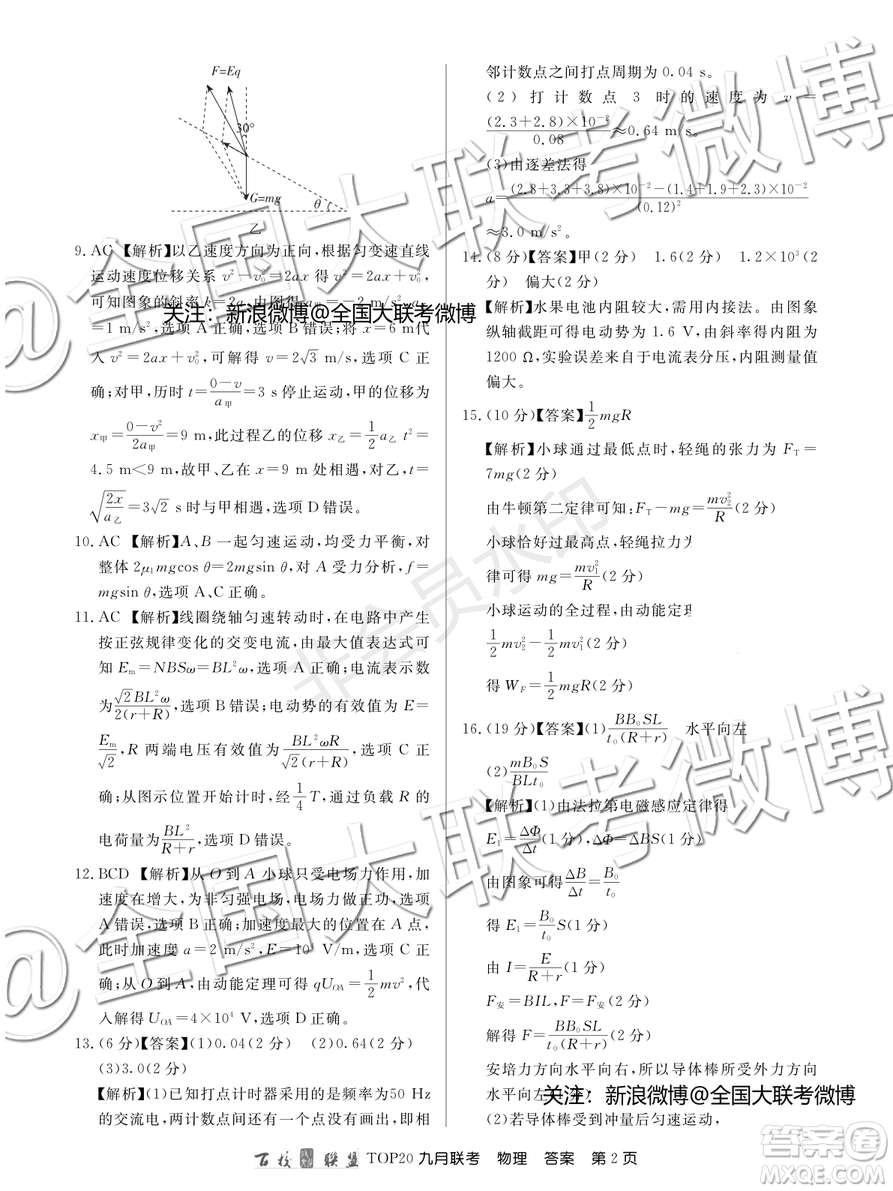 F=Eq
30°
G=mg
θ
乙
9. AC 【解析】以乙速度方向为正向,根据匀变速直线
运动速度位移关系 v²-v₀²=2ax 得 v²=2ax+v₀²,
可知图象的斜率 k=2a,由图得 a甲=-2 m/s²,a乙
=1 m/s²,选项 A 正确,选项 B 错误;将 x=6 m代
入 v²=2ax+v₀²,可解得 v=2√3 m/s,选项 C 正
确;对甲,历时 t=(0-v)/a甲=3 s 停止运动,甲的位移为
x甲=(0-v²)/(2a甲)=9 m,此过程乙的位移 x乙=1/2 a乙 t²=
4.5 m<9 m,故甲、乙在 x=9 m 处相遇,对乙,t=
√(2x/a乙)=3√2 s时与甲相遇,选项 D 错误。
10. AC 【解析】A、B 一起匀速运动,均受力平衡,对
整体 2μ₁mgcos θ=2mgsin θ,对 A 受力分析,f=
mgsin θ,选项 A、C 正确。
11. AC 【解析】线圈绕轴匀速转动时,在电路中产生
按正弦规律变化的交变电流,由最大值表达式可
知 Eₘ=NBSω=BL²ω,选项 A 正确;电流表示数
为√2BL²ω/2(r+R),选项 B 错误;电动势的有效值为 E=
Eₘ/√2,R 两端电压有效值为BL²ωR/√2(r+R),选项 C 正
确;从图示位置开始计时,经1/4 T,通过负载 R 的
电荷量为BL²/(R+r),选项 D 错误。
12. BCD 【解析】从 O 到 A 小球只受电场力作用,加
速度在增大,为非匀强电场,电场力做正功,选项
A 错误,选项 B 正确;加速度最大的位置在 A 点,
此时加速度 a=2 m/s²,E=10⁴ V/m,选项 C 正
确;从 O 到 A,由动能定理可得 qU_OA=1/2 mv²,代
入解得 U_OA=4×10⁴ V,选项 D 正确。
13. (6 分)【答案】(1)0.04(2 分) (2)0.64(2 分)
(3)3.0(2 分)
【解析】(1)已知打点计时器采用的是频率为50 Hz
的交流电,两计数点间还有一个点没有画出,即相
邻计数点之间打点周期为 0.04 s。
(2)打计数点 3 时的速度为 v=
(2.3+2.8)×10⁻²/0.08≈0.64 m/s。
(3)由逐差法得
a=[(2.8+3.3+3.8)×10⁻²-(1.4+1.9+2.3)×10⁻²]/(0.12)²
≈3.0 m/s²。
14. (8 分)【答案】甲(2 分) 1.6(2 分) 1.2×10³(2
分) 偏大(2 分)
【解析】水果电池内阻较大,需用内接法。由图象
纵轴截距可得电动势为 1.6 V,由斜率得内阻为
1200 Ω,实验误差来自于电流表分压,内阻测量值
偏大。
15. (10 分)【答案】1/2 mgR
【解析】小球通过最低点时,轻绳的张力为 F_T=
7mg(2 分)
由牛顿第二定律可知:F_T-mg=mv₂²/R(2 分)
小球恰好过最高点,轻绳拉力为
律可得 mg=mv₁²/R(2 分)
小球运动的全过程,由动能定理
1/2 mv₂²-1/2 mv₁²(2 分)
得 W_F=1/2 mgR(2 分)
16. (19 分)【答案】(1)BB₀SL/t₀(R+r) 水平向左
(2)mB₀S/BLt₀
【解析】(1)由法拉第电磁感应定律得
E₁=ΔΦ/Δt(1 分),ΔΦ=ΔBS(1 分)
由图象可得ΔB/Δt=B₀/t₀(1 分)
得 E₁=B₀/t₀ S(1 分)
由 I=E/(R+r)(1 分)
F安=BIL,F=F安(2 分)
解得 F=BB₀SL/t₀(R+r)(1 分)
安培力方向水平向右,所以导体棒所受外力方向
水平向左
(2)若导体棒受到冲量后匀速运动,
百校联盟 TOP20 九月联考 物理 答案 第 2 页
关注:新浪微博@全国大联考微博
关注:新浪微博@全国大联考微博
@全国大联考微博
@全国大联考微博
非会员水印
答案圈
MXQE.COM